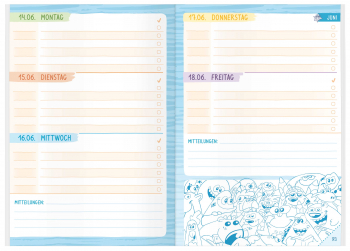 14.06. MONTAG
15.06. DIENSTAG
16.06. MITTWOCH
MITTEILUNGEN:
17.06. DONNERSTAG
JUNI
18.06. FREITAG
MITTEILUNGEN: